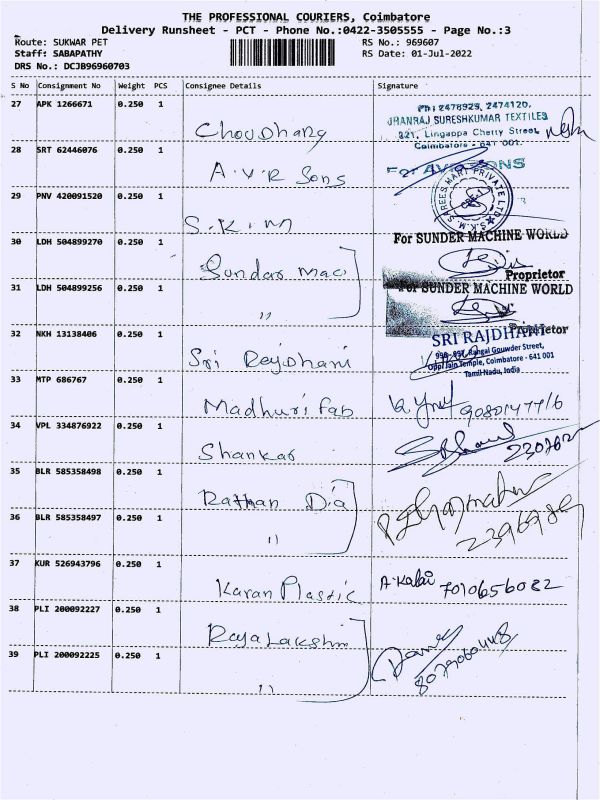 THE PROFESSIONAL COURIERS, Coimbatore
Delivery Runsheet - PCT - Phone No.:0422-3505555 - Page No.:3
Route: SUKWAR PET RS No.: 969607
Staff: SABAPATHY RS Date: 01-Jul-2022
DRS No.: DCJB96960703
S No Consignment No Weight PCS Consignee Details Signature
27 APK 1266671 0.250 1 Choudhary
Ph: 2478923, 2474120.
JHANRAJ SURESHKUMAR TEXTILES
321, Lingappa Chetty Street,
Coimbatore - 641 001.
28 SRT 62446076 0.250 1 A.V.R Sons
For AVR SONS
29 PNV 420091520 0.250 1 S.K.M
S.K.M SAREES MART PRIVATE LTD
30 LDH 504899270 0.250 1 Sundar Mac
For SUNDER MACHINE WORLD
Proprietor
31 LDH 504899256 0.250 1 "
For SUNDER MACHINE WORLD
Proprietor
32 NKH 13138406 0.250 1 Sri Rajdhani
SRI RAJDHANI
Rangai Gouwder Street,
Opp. Jain Temple, Coimbatore - 641 001
Tamil Nadu, India
33 MTP 686767 0.250 1 Madhuri Fab
34 VPL 334876922 0.250 1 Shankar
35 BLR 585358498 0.250 1 Rathan Dia
36 BLR 585358497 0.250 1 "
37 KUR 526943796 0.250 1 Karan Plastic A-Kalai 7010656082
38 PLI 200092227 0.250 1 Rajalakshmi
39 PLI 200092225 0.250 1 "